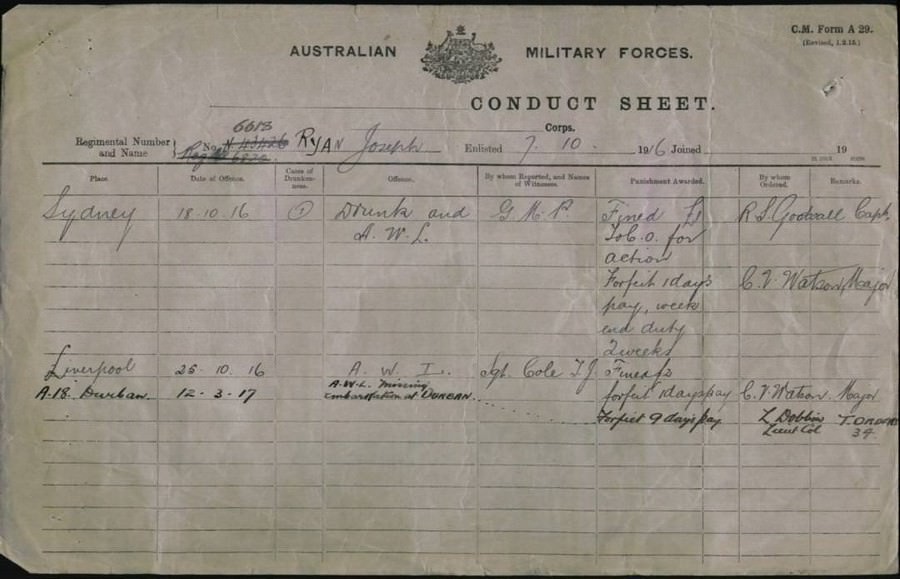 C.M. Form A 29.
(Revised, 1.2.15.)
AUSTRALIAN MILITARY FORCES.
CONDUCT SHEET.
Corps.
6618
Regimental Number and Name } No. RYAN Joseph Enlisted 7. 10. 1916 Joined 19
Place. Date of Offence. Cases of Drunkenness. Offence. By whom Reported, and Names of Witnesses. Punishment Awarded. By whom Ordered. Remarks.
Sydney 18.10.16 1 Drunk and G.M.P. Fined £1 Capt.
A.W.L. To C.O. for
action
Forfeit 1 day's C.V. Watson Major
pay, week
end duty
2 weeks
Liverpool 25.10.16 A.W.L. Sgt. Cole T.J.
A.18. Durban. 12-3-17 A.W.L. missing forfeit 1 days pay C.V. Watson Major
embarkation at DURBAN
Forfeit 9 day's pay Dobbin
Lieut Col 34